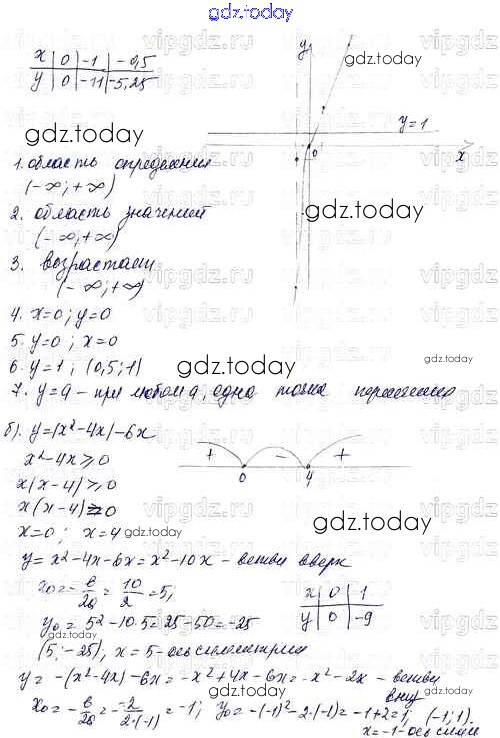 gdz.today
x | 0 | -1 | -0,5
y | 0 | -11 | -5,25
y
gdz.today
gdz.today
y=1
0
x
1. область определения
(-∞;+∞)
gdz.today
2. область значений
(-∞,+∞)
3. возрастает
(-∞;+∞)
4. x=0; y=0
5. y=0; x=0
6. y=1; (0,5;1)
gdz.today
gdz.today
7. y=a - при любом a, одна точка пересечения
б). y=|x²-4x|-6x
x²-4x≥0
+ - +
0 4
x(x-4)≥0
x(x-4)=0
x=0; x=4
gdz.today
gdz.today
y=x²-4x-6x=x²-10x - ветви вверх
x₀=-b/2a=10/2=5;
x | 0 | 1
y | 0 | -9
y₀=5²-10·5=25-50=-25
gdz.today
(5;-25), x=5-ось симметрии
y=-(x²-4x)-6x=-x²+4x-6x=-x²-2x - ветви
вниз
x₀=-b/2a=-(-2)/2·(-1)=-1; y₀=-(-1)²-2·(-1)=-1+2=1; (-1;1).
gdz.today
x=-1-ось симм.